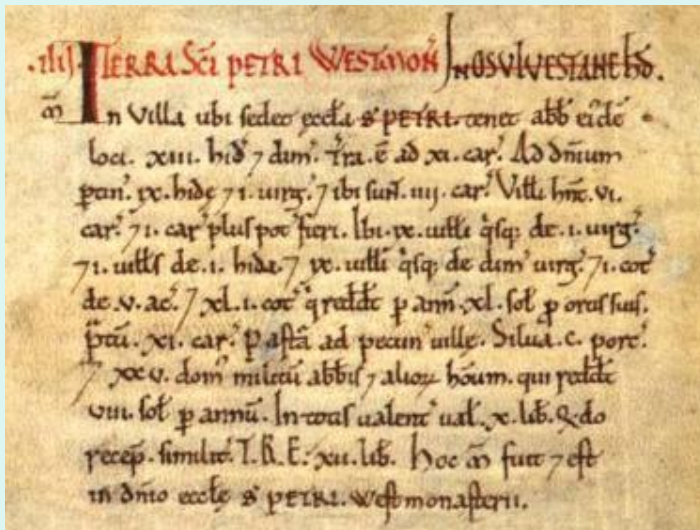 .IIII. TERRA S̄CI PETRI WESTMON̄ IN OSULVESTANE HD̄.
M̄ In Villa ubi sedet æccl̄a S PETRI. tenet abb̄ ei'dē
loci. xiii. hid' ⁊ dim'. T̄ra. ē ad xi. car'. Ad dn̄ium
ptin'. ix. hidę ⁊ i. uirg'. ⁊ ibi sun̄. iiii. car'. Villi hn̄t. vi.
car'. ⁊ i. car' plus pot' fieri. Ibi. ix. uilli q̄sq; de. i. uirg'.
⁊ i. uill's de. i. hida. ⁊ ix. uilli q̄sq; de dim' uirg'. ⁊ i. cot'
de. v. ac'. ⁊ xl. i. cot' q̄ redd̄t p ann̄. xl. sol' p ortis suis.
P̄tū. xi. car'. Pastā ad pecun' uillę. Silua. c. porc'.
⁊ xxv. dom' militū abb̄is ⁊ alioꝝ hōum. qui redd̄t
viii. sol' p annū. In totis ualent' ual'. x. lib'. Q̄do
recep̄. similit'. T. R. E. xii. lib'. Hoc m̄ fuit ⁊ est
in dn̄io eccl̄ę S PETRI. westmonasterii.